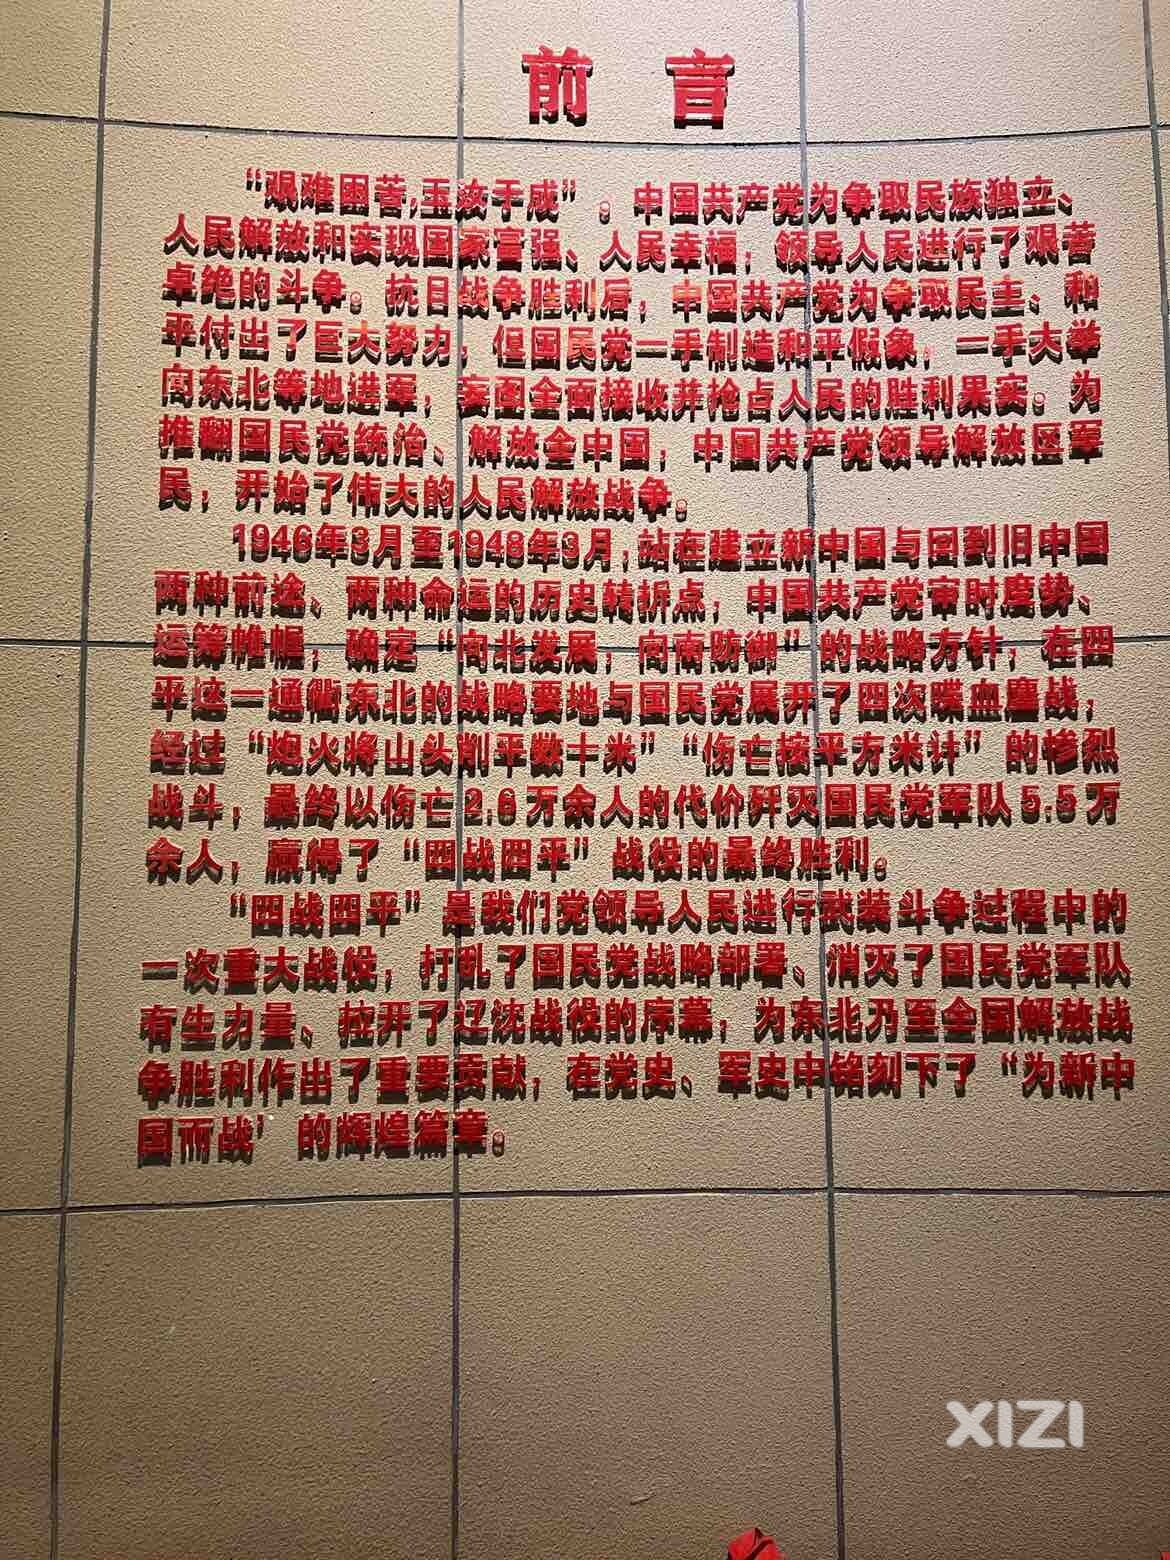 前言
“艰难困苦,玉汝于成”。中国共产党为争取民族独立、
人民解放和实现国家富强、人民幸福，领导人民进行了艰苦
卓绝的斗争。抗日战争胜利后，中国共产党为争取民主、和
平付出了巨大努力，但国民党一手制造和平假象，一手大举
向东北等地进军，妄图全面接收并抢占人民的胜利果实。为
推翻国民党统治、解放全中国，中国共产党领导解放区军
民，开始了伟大的人民解放战争。
1946年3月至1948年3月,站在建立新中国与回到旧中国
两种前途、两种命运的历史转折点，中国共产党审时度势、
运筹帷幄，确定“向北发展，向南防御”的战略方针，在四
平这一通衢东北的战略要地与国民党展开了四次喋血鏖战，
经过“炮火将山头削平数十米”“伤亡按平方米计”的惨烈
战斗，最终以伤亡2.6万余人的代价歼灭国民党军队5.5万
余人，赢得了“四战四平”战役的最终胜利。
“四战四平”是我们党领导人民进行武装斗争过程中的
一次重大战役，打乱了国民党战略部署、消灭了国民党军队
有生力量、拉开了辽沈战役的序幕，为东北乃至全国解放战
争胜利作出了重要贡献，在党史、军史中铭刻下了“为新中
国而战’的辉煌篇章。
XIZI